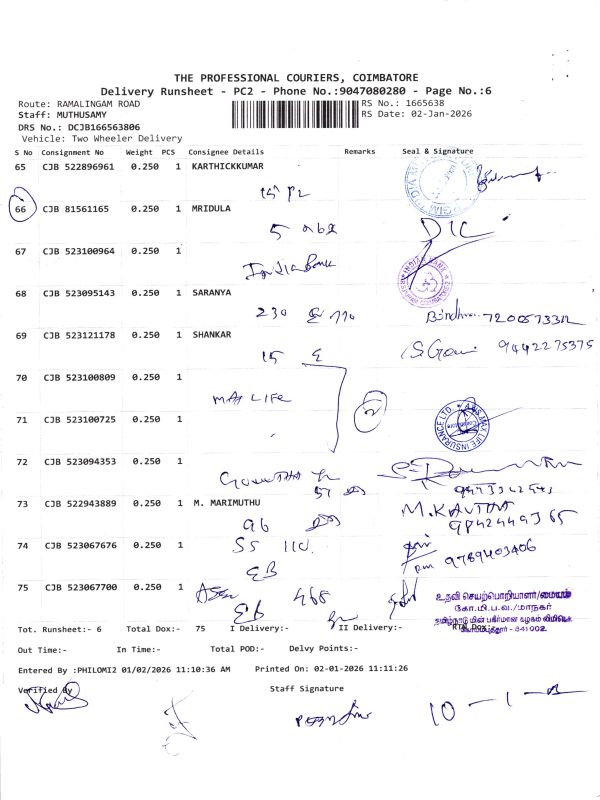 THE PROFESSIONAL COURIERS, COIMBATORE
Delivery Runsheet - PC2 - Phone No.:9047080280 - Page No.:6
Route: RAMALINGAM ROAD RS No.: 1665638
Staff: MUTHUSAMY RS Date: 02-Jan-2026
DRS No.: DCJB166563806
Vehicle: Two Wheeler Delivery
S No Consignment No Weight PCS Consignee Details Remarks Seal & Signature
65 CJB 522896961 0.250 1 KARTHICKKUMAR
66 CJB 81561165 0.250 1 MRIDULA
5 DLC
67 CJB 523100964 0.250 1
India Bank
68 CJB 523095143 0.250 1 SARANYA
230 770 Bindhu 7200573312
69 CJB 523121178 0.250 1 SHANKAR
15 S. Gowri 9442275375
70 CJB 523100809 0.250 1
MAX LIFE
71 CJB 523100725 0.250 1
AXIS MAX LIFE INSURANCE LTD.
72 CJB 523094353 0.250 1
73 CJB 522943889 0.250 1 M. MARIMUTHU
M. KAVITHA
96 9842449365
74 CJB 523067676 0.250 1
SS 110 9789403406
EB
75 CJB 523067700 0.250 1
468
EB
உதவி செயற்பொறியாளர்/மையம்
கோ.மி.ப.வ./மாநகர்
தமிழ்நாடு மின் பகிர்மான கழகம் லிமிடெட்
கோயம்புத்தூர் - 641 002.
Tot. Runsheet:- 6 Total Dox:- 75 I Delivery:- II Delivery:- RTN Dox:-
Out Time:- In Time:- Total POD:- Delvy Points:-
Entered By :PHILOMI2 01/02/2026 11:10:36 AM Printed On: 02-01-2026 11:11:26
Verified By Staff Signature
10 - 1 -